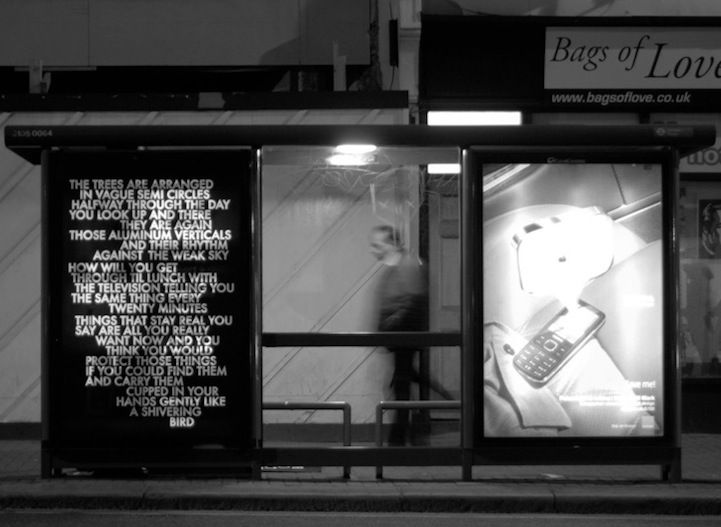 Bags of Love
www.bagsoflove.co.uk
THE TREES ARE ARRANGED
IN VAGUE SEMI CIRCLES
HALFWAY THROUGH THE DAY
YOU LOOK UP AND THERE
THEY ARE AGAIN
THOSE ALUMINUM VERTICALS
AND THEIR RHYTHM
AGAINST THE WEAK SKY
HOW WILL YOU GET
THROUGH TIL LUNCH WITH
THE TELEVISION TELLING YOU
THE SAME THING EVERY
TWENTY MINUTES
THINGS THAT STAY REAL YOU
SAY ARE ALL YOU REALLY
WANT NOW AND YOU
THINK YOU WOULD
PROTECT THOSE THINGS
IF YOU COULD FIND THEM
AND CARRY THEM
CUPPED IN YOUR
HANDS GENTLY LIKE
A SHIVERING
BIRD
me!